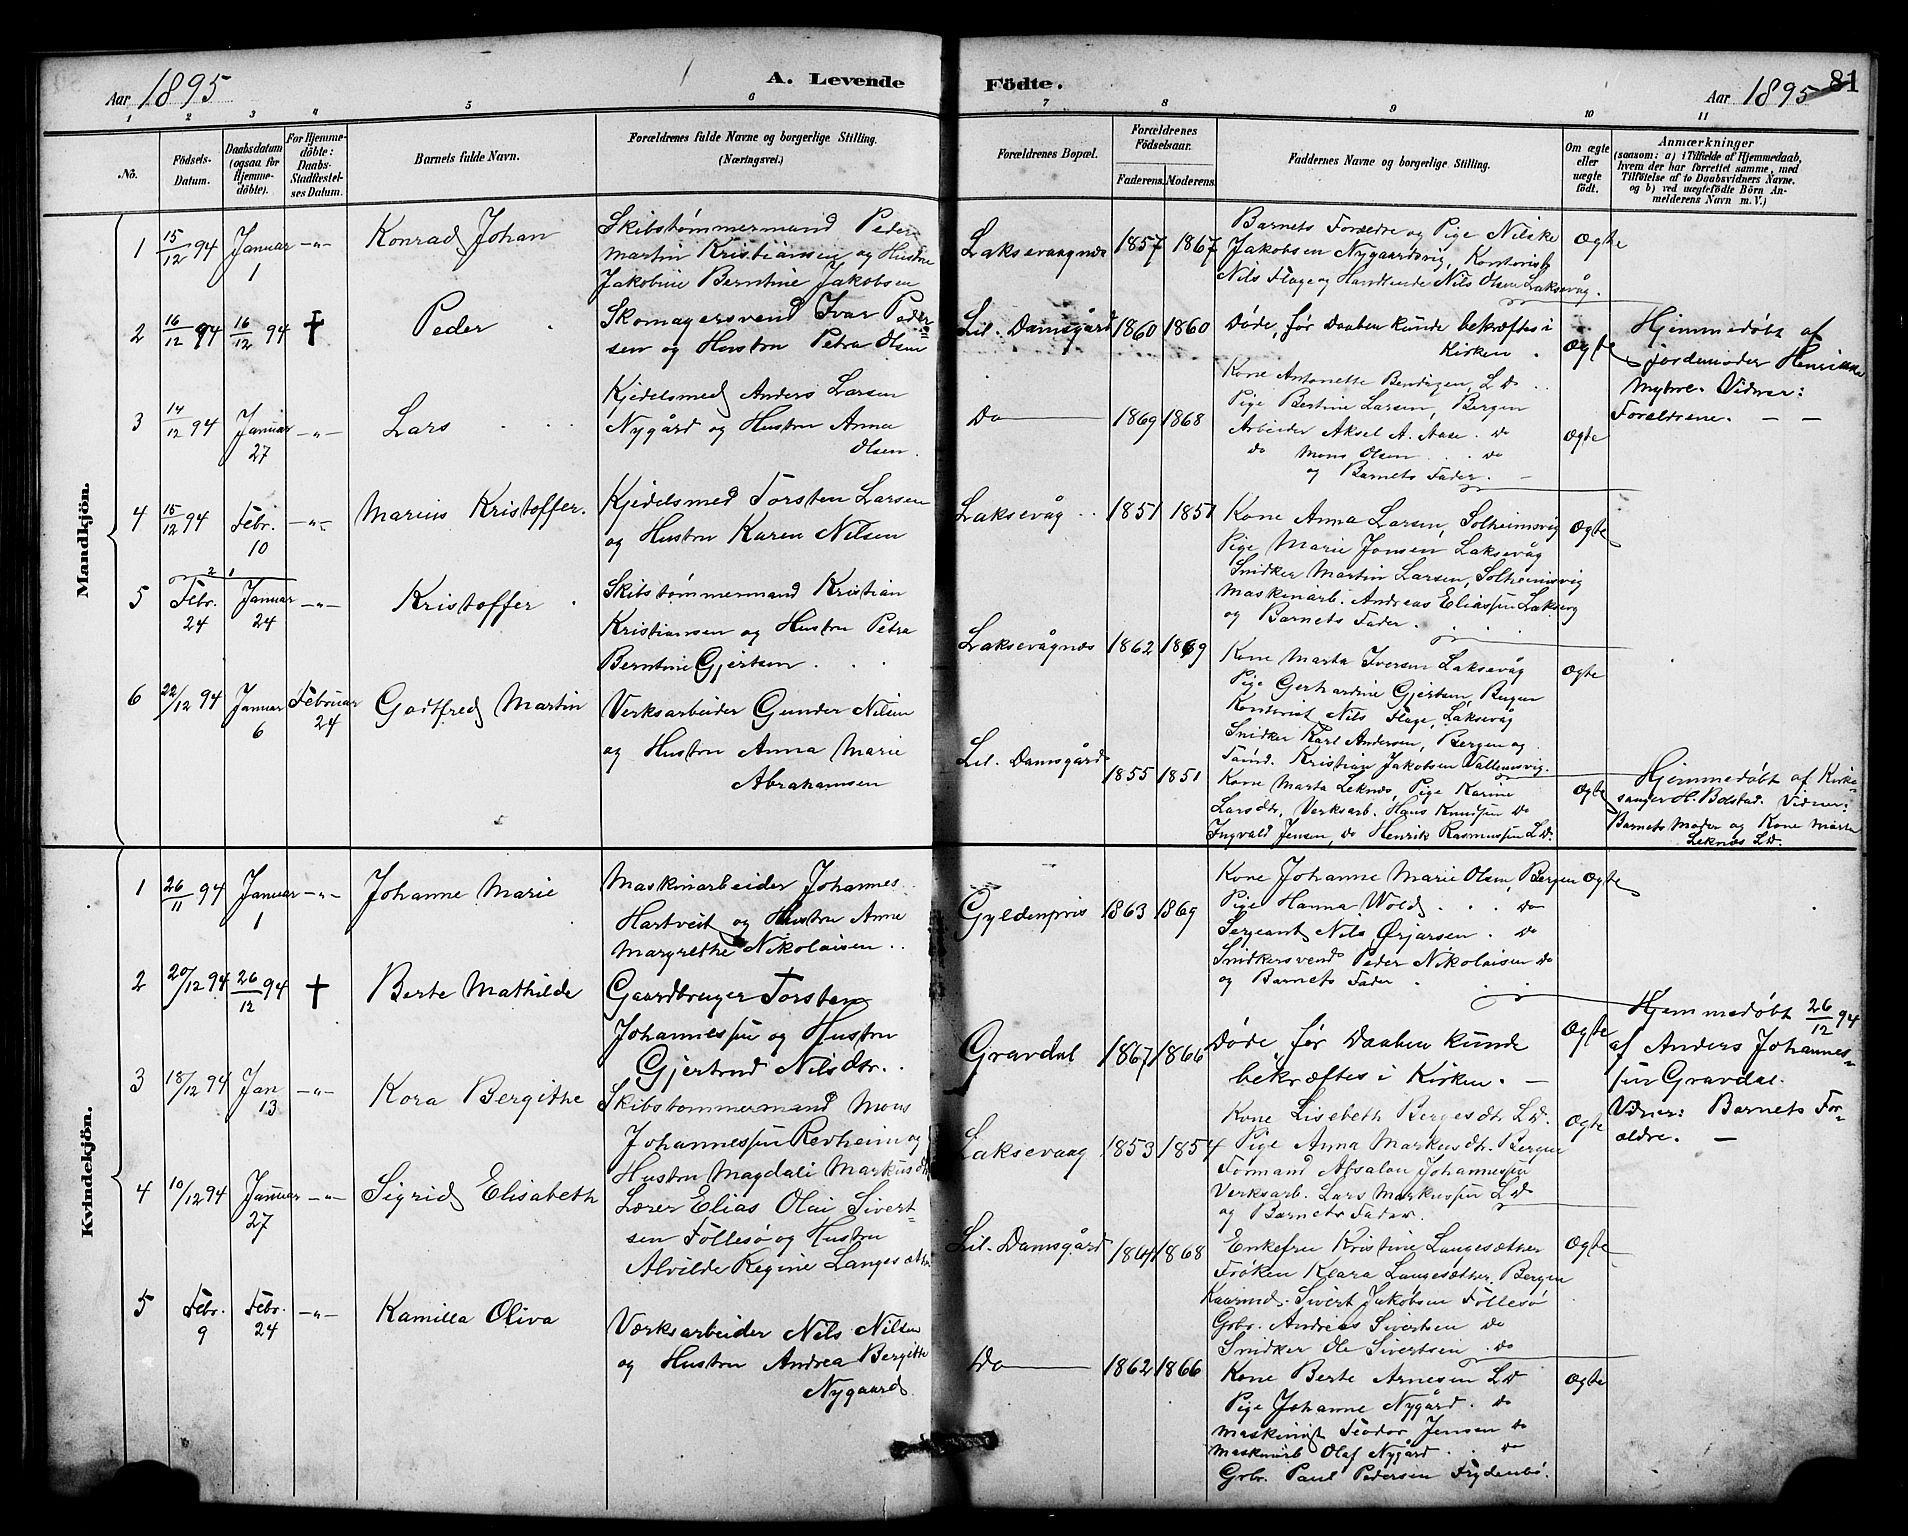 Aar 1895
A. Levende
Födte.
Aar 1895
81
1 2 3 4 5 6 7 8 9 10 11
No.
Födsels-Datum.
Daabsdatum (ogsaa for Hjemmedöbte).
For Hjemmedöbte: Daabs-Stadfæstelses Datum.
Barnets fulde Navn.
Forældrenes fulde Navne og borgerlige Stilling. (Næringsvei.)
Forældrenes Bopæl.
Forældrenes Födselsaar.
Faderens. Moderens.
Faddernes Navne og borgerlige Stilling.
Om ægte eller uægte födt.
Anmærkninger
(saasom: a) i Tilfælde af Hjemmedaab, hvem der har forrettet samme, med Tilföielse af to Daabsvidners Navne, og b) ved uægtefödte Börn Anmelderens Navn m. V.)
Mandkjön.
1 15/12 94 Januar 1 -"- Konrad Johan
Skibstømmermand Peder
Martin Kristiansen og Hustru
Jakobine Berntine Jakobsen
Laksevaagnes 1857 1867
Barnets Forældre og Pige Nilske
Jakobsen Nygaardsvig, Kontorist
Nils Flage og Handlende Nils Olsen Laksevåg.
Ægte
2 16/12 94 16/12 94 † Peder
Skomagersvend Ivar Peder=
sen og Hustru Petra Olsen
Lil. Damsgård 1860 1860
Døde, før Daaben kunde bekræftes i
Kirken.
Ægte
Hjemmedøbt af
Jordemoder Henrikke
Myhre. Vidner:
Forældrene. — —
3 14/12 94 Januar 27 -"- Lars
Kjedelsmed Anders Larsen
Nygård og Hustru Anna
Olsen.
Do 1869 1868
Kone Antonette Bendigsen, L D
Pige Bertine Larsen, Bergen
Arbeider Aksel A. Aase. do
do Mons Olsen . . do
og Barnets Fader.
Ægte
4 15/12 94 Febr. 10 -"- Marius Kristoffer.
Kjedelsmed Torsten Larsen
og Hustru Karen Nilsen
Laksevåg 1851 1851
Kone Anna Larsen, Solheimsvig
Pige Marie Jonsen Laksevåg
Snidker Martin Larsen, Solheimsvig
Maskinarb. Andreas Eliassen Laksevg
og Barnets Fader.
Ægte
5 Febr. 24 Januar 24 -"- Kristoffer
2 1
Skibstømmermand Kristian
Kristiansen og Hustru Petra
Berntine Gjertsen
Laksevågnes 1862 1869
Kone Marta Iversen Laksevåg
Pige Gerhardine Gjertsen, Bergen
Kontorist Nils Flage, Laksevåg
Snidker Karl Andersen, Bergen og
Tømd. Kristian Jakobsen
Ægte
6 22/12 94 Januar 6 Februar 24 Godtfred Martin
Verksarbeider Gunder Nilsen
og Hustru Anna Marie
Abrahamsen
Lil. Damsgård 1855 1851
Kone Marta Leknes, Pige Karine
Larsdtr, Verksarb. Hans Knudsen Do
Ingvald Jensen, do Henrik Rasmussen L.D.
Ægte
Hjemmedøbt af Kirke-
sanger H. Bolstad. Vidner:
Barnets Moder og Kone Marta
Leknæs L.D.
Kvindekjön.
1 26/11 94 Januar 1 -"- Johanne Marie
Maskinarbeider Johannes
Hartveit og Hustru Anne
Margrethe Nikolaisen
Gyldenpris 1863 1869
Kone Johanne Marie Olsen, Bergen
Pige Hanna Wold . . . Do
Sergeant Nils Ørjarsen . Do
Snidkersvend Peder Nikolaisen Do
og Barnets Fader
Ægte
2 20/12 94 26/12 94 † Berte Mathilde
Gaardbruger Torsten
Johannessen og Hustru
Gjertrud Nilsdtr.
Gravdal 1867 1866
Døde, før Daaben kunde
bekræftes i Kirken. —
Ægte
Hjemmedøbt 26/12 94
af Anders Johannes-
sen Gravdal.
Vidner: Barnets For-
ældre. —
3 18/12 94 Jan 13 -"- Kora Bergithe
Skibstømmermand Mons
Johannessen Revheim og
Hustru Magdali Markusdtr
Laksevaag 1853 1854
Kone Lisebeth Bergesdtr L.D.
Pige Anna Markusdtr. Bergen
Formand Absalon Johannessen
Verksarb. Lars Markussen L.D
og Barnets Fader.
Ægte
4 10/12 94 Januar 27 -"- Sigrid Elisabeth
Lærer Elias Olai Sivert-
sen Föllesø og Hustru
Alvilde Regine Langesæther
Lil. Damsgård 1864 1868
Enkefru Kristine Langesæther
Frøken Klara Langesæther. Bergen
Kaarmd. Sivert Jakobsen Föllesö
Grbr. Andreas Sivertsen do
Snidker Ole Sivertsen do
Ægte
5 Febr. 9 Febr. 24 -"- Kamilla Oliva
Værksarbeider Nils Nilsen
og Hustru Andrea Bergitte
Nygaard.
Do 1862 1866
Kone Berte Arnesen L.D
Pige Johanne Nygård. do
Maskinist Teodor Jensen do
Maskinarb Olaf Nygård . . do
Grbr. Paul Pedersen Frydenbö.
Ægte